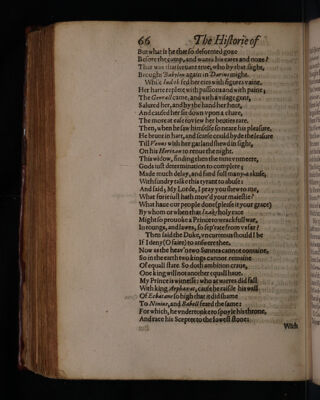 66 The Historie of
But what is he that so deformed goze
Before the camp, and wants his eares and noze?
That was that seruant true, who by that slight,
Brought Babylon again in Darius might.
While Iudith fed her eies with figures vaine,
Her harte replete with passions and with paine;
The Generall came, and with a visage gent,
Saluted her, and by the hand her hent,
And caused her sit down vpon a chare,
The more at ease to view her beuties rare.
Then, when he saw himselfe so neare his pleasure,
He brunt in hart, and scarse could byde the leasure
Till Venus with her garland shewd in sight,
On his Horizan to renue the night.
This widow, finding then the time vnmeete,
Gods iust determination to complete;
Made much delay, and fand full many a skuse,
With sundry talke this tyrant to abuse:
And said; My Lorde, I pray you shew to me,
What forfeiult hath mou'd your maiestie?
What haue our people done (please it your grace)
By whom or when that Isaks holy race
Might so prouoke a Prince to wrack full war,
In toungs, and lawes, so sep'rate from vs far?
Then said the Duke, vncurteous should I be
If I deny (O faire) to answere thee.
Now as the heau'n two Sunnes cannot containe,
So in the earth two kings cannot remaine
Of equall stare. So doth ambition craue,
One king will not another equall haue.
My Prince is witnesse: who at warres did fall
With king Arphaxat, cause he raisde his wall
Of Ecbatane so high that it did shame
To Niniue, and Babell feard the same:
For which, he vndertooke to spoyle his throne,
And race his Scepter to the lowest stone:
With